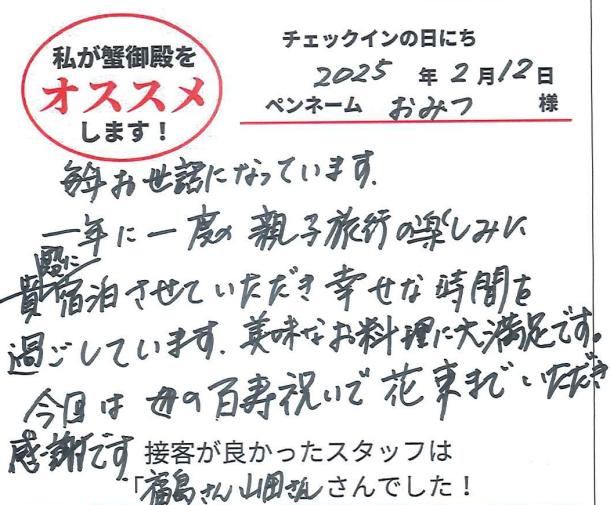 私が蟹御殿を
オススメ
します！
チェックインの日にち
2025 年 2 月 12 日
ペンネーム おみつ 様
毎年お世話になっています。
一年に一度の親子旅行の楽しみに
貴殿に宿泊させていただき幸せな時間を
過ごしています。美味なお料理に大満足です。
今回は母の百寿祝いで花束までいただき
感謝です
接客が良かったスタッフは
「福島さん山田さんさんでした！